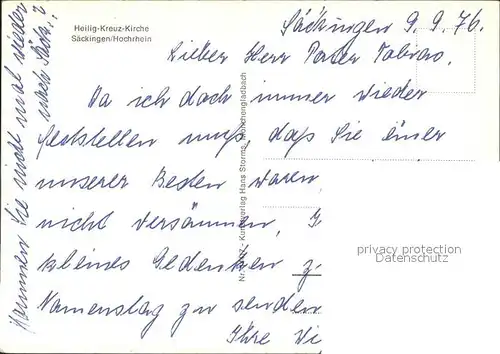 Heilig-Kreuz-Kirche
Säckingen/Hochrhein
Säckingen 9. 9. 76.
Lieber Herr Pater
Da ich doch immer wieder
feststellen muß, daß Sie einer
unserer Besten waren,
nicht versäumen,
kleines Gedenken z
Namenstag zu senden
Ihre
Kommen Sie nicht mal wieder
nach
Kunstverlag Hans Storms, Mönchengladbach
privacy protection
Datenschutz